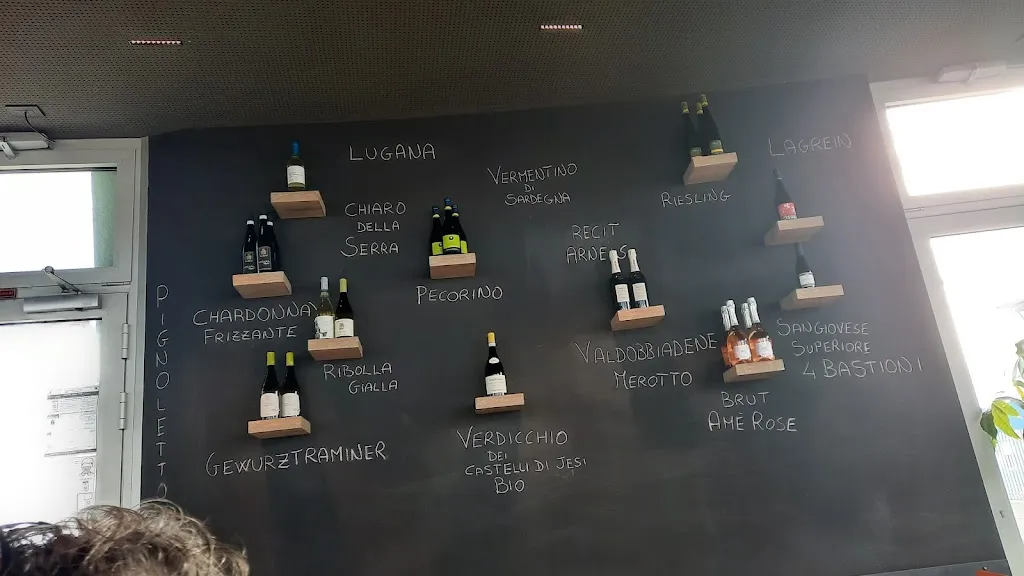 LUGANA
VERMENTINO
DI
SARDEGNA
RIESLING
LAGREIN
CHIARO
DELLA
SERRA
RECIT
ARNEIS
PECORINO
PIGNOLETTO
CHARDONNAY
FRIZZANTE
RIBOLLA
GIALLA
VALDOBBIADENE
MEROTTO
SANGIOVESE
SUPERIORE
4 BASTIONI
BRUT
AMÈ ROSE
GEWURZTRAMINER
VERDICCHIO
DEI
CASTELLI DI JESI
BIO